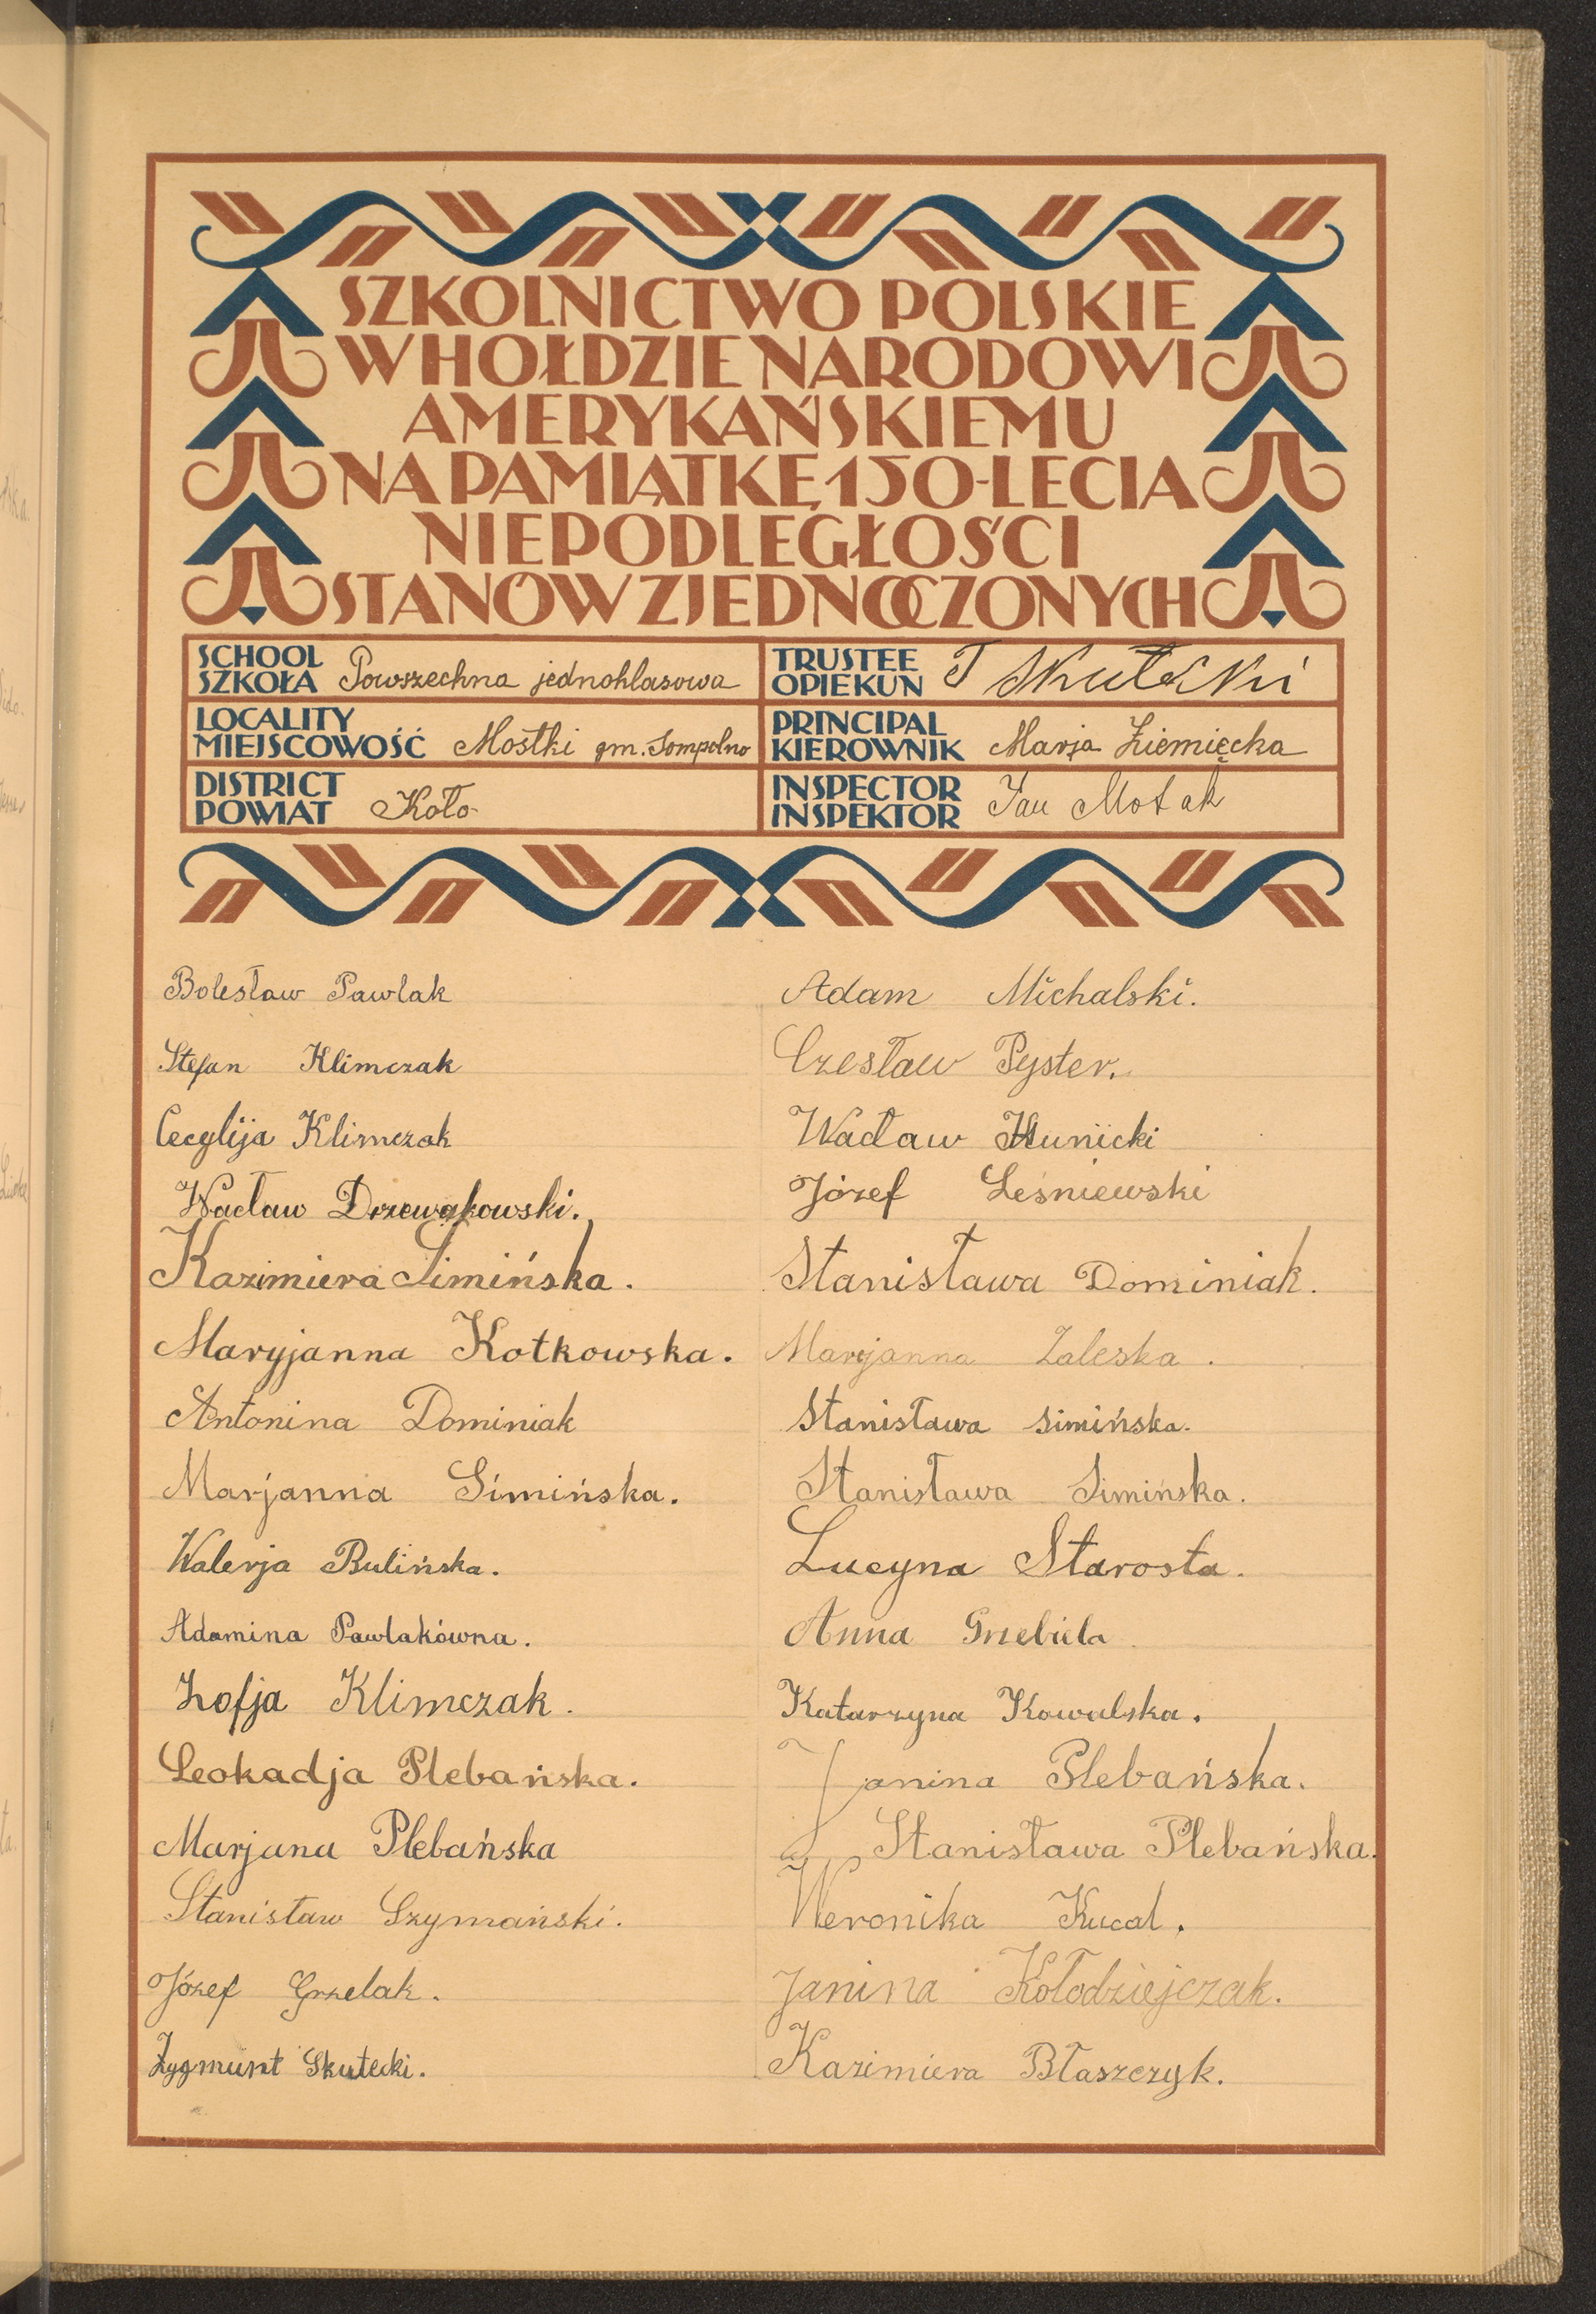 SZKOLNICTWO POLSKIE
W HOŁDZIE NARODOWI
AMERYKAŃSKIEMU
NA PAMIĄTKĘ 150-LECIA
NIEPODLEGŁOŚCI
STANÓW ZJEDNOCZONYCH
SCHOOL
SZKOŁA Powszechna jednoklasowa
TRUSTEE
OPIEKUN T Skutecki
LOCALITY
MIEJSCOWOŚĆ Mostki gm. Sompolno
PRINCIPAL
KIEROWNIK Marja Ziemięcka
DISTRICT
POWIAT Koło
INSPECTOR
INSPEKTOR Jan Motak
Bolesław Pawlak
Stefan Klimczak
Cecylija Klimczak
Wacław Drzewakowski.
Kazimiera Simińska.
Maryjanna Kotkowska.
Antonina Dominiak
Marjanna Simińska.
Walerja Bulińska.
Adamina Pawlakówna.
Zofja Klimczak.
Leokadja Plebańska.
Marjana Plebańska
Stanisław Szymański.
Józef Grzelak.
Zygmunt Skutecki.
Adam Michalski.
Czesław Pyster.
Wacław Kunicki
Józef Leśniewski
Stanisława Dominiak.
Maryjanna Zaleska.
Stanisława Simińska.
Stanisława Simińska.
Lucyna Starosta.
Anna Grzebiela
Katarzyna Kowalska.
Janina Plebańska.
Stanisława Plebańska.
Weronika Kucal.
Janina Kołodziejczak.
Kazimiera Błaszczyk.